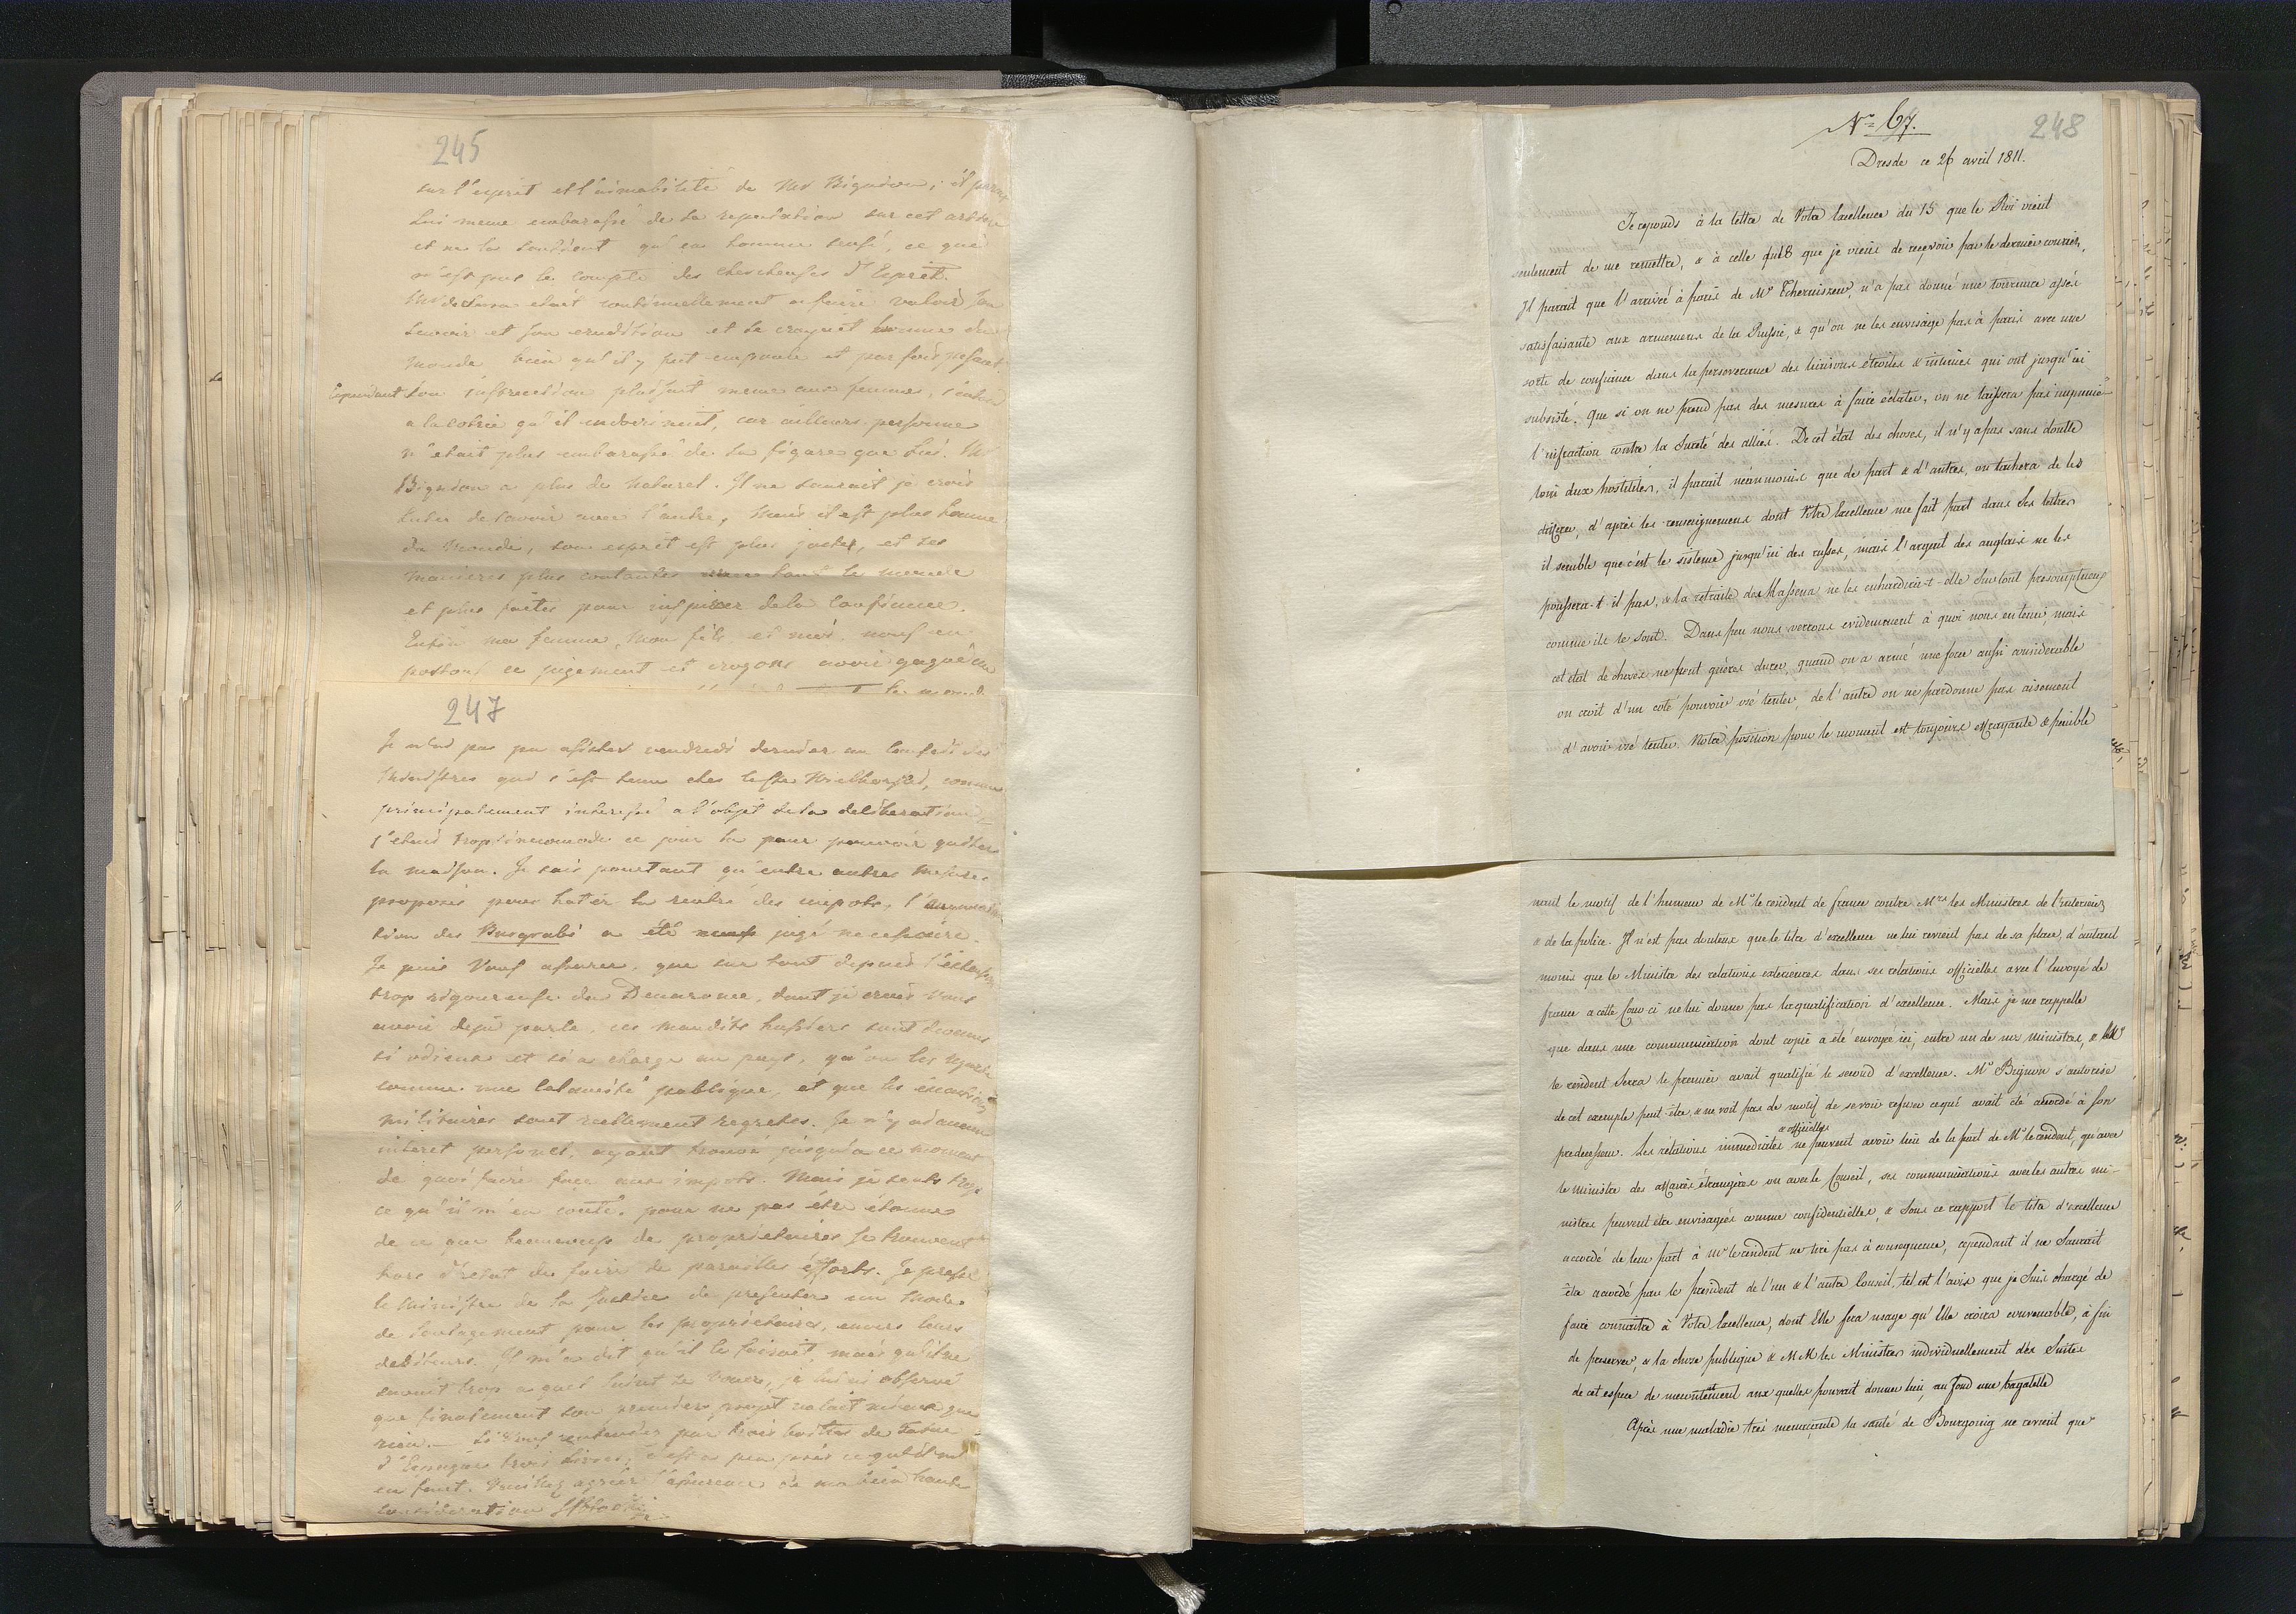 245
sur l'esprit et l'aimabilité de Mr Bignon; il parait
lui meme embarassé de sa reputation sur cet article
et ne la soutient qu'en homme rusé, ce qui
n'est pas le compte des chercheuses d'Esprit.
Mr de Serra etait continuellement a faire valoir son
savoir et son erudition et se croyait homme du
monde bien qu'il y fut empoule et par fois pesant.
Cependant son instruction plaisait meme aux femmes, s'entend
a la cotrie qu'il endoctrinait, car ailleurs personne
n'etait plus embarassé de sa figure que lui. Mr
Bignon a plus de naturel. Il ne saurait je crois
luter de savoir avec l'autre, mais il est plus homme
du monde, son esprit est plus juste, et ses
manieres plus coulantes avec tout le monde
et plus faites pour inspirer de la confiance.
Enfin ma femme, mon fils et moi, nous en
portons ce jugement et croyons avoir gagné au
le monde
247
Je n'ai pas pu assister vendredi dernier au Conseil des
Ministres qui s'est tenu chez le Cte Wielhorski, comme
principalement interessé a l'objet de la deliberation,
j'etais trop incomodé ce jour la pour pouvoir quitter
la maison. Je sais pourtant qu'entre autres mesures
proposés pour hater la rentré des impots, l'augmenta
tion des Busgrabi a été jugé necessaire.
Je puis vous assurer, que sur tout depuis
trop rigoureuse du Decarome, dont je crois vous
avoir deja parlé, ces maudits hussiers sont devenus
si odieux et si a charge au pays, qu'on les regarde
comme une calamité publique, et que les éxecutions
militaires sont reellement regretés. Je n'y ai aucun
interet personel, ayant trouvé jusqu'a ce moment
de quoi faire face aux impots. Mais je sents trop
ce qu'il m'en coute, pour ne pas être étonné
de ce que beaucoup de proprietaires se trouvent
hors d'etat de faire de pareilles éfforts. Je presse
le Ministre de la Justice de presenter un mode
de soulagement pour les proprietaires, envers leurs
debiteurs. Il m'a dit qu'il le faisait mais qu'il ne
savait trop a quel saint se vouer, je lui ai observé
que finalement son premier projet valait mieux que
rien. — Si vous entendez par trois boittes de Tabac
d'Espagne trois livres, c'est a peu près ce qu'il m'
en faut. Veuillez agréer l'assurance de ma bien haute
consideration
No 67.
248
Dresde ce 26 avril 1811.
Je reponds à la lettre de Votre Excellence du 15 que le Roi vient
seulement de me remettre, & à celle du 18 que je viens de reçevoir par le dernier courier,
Il parait que l'arrivée à paris de Mr Tcherniszew, n'a pas donné une tournure assés
satisfaisante aux armemens de la Russie, & qu'on ne les envisage pas à paris avec une
sorte de confiance dans la perseverance des liaisons étroites & intimes qui ont jusqu'ici
subsisté. Que si on ne prend pas des mesures à faire éclater, on ne laissera pas impunie
l'infraction contre la Sureté des alliés. De cet état des choses, il n'y a pas sans doutte
loin aux hostilités, il parait néanmoins que de part & d'autre, on tachera de les
differer, d'après les renseignemens dont Votre Excellence me fait part dans Ses lettres
il semble que c'est le sisteme jusqu'ici des russes, mais l'argent des anglais ne les
poussera-t-il pas, & la retraite de Massena ne les enhardira-t-elle Surtout presomptueux
comme ils le sont. Dans peu nous verrons evidemment à quoi nous en tenir, mais
cet état de choses ne peut guères durer, quand on a armé une force aussi considerable
on croit d'un coté pouvoir osé tenter, de l'autre on ne pardonne pas aisement
d'avoir osé tenter. Notre position pour le moment est toujours effrayante & penible
nait le motif de l'humeur de Mr le resident de france contre Mrs les Ministres de l'Interieur
& de la police. Il n'est pas douteux que le titre d'excellence ne lui revient pas de sa place, d'autant
moins que le Ministre des relations exterieures dans ses relations officielles avec l'Envoyé de
france a cette Cour-ci ne lui donne pas la qualification d'excellence. Mais je me rappelle
que dans une communication dont copie a été envoyée ici, entre un de nos ministres, & Mr
le resident Serra le premier avait qualifié le second d'excellence. Mr Bignon s'autorise
de cet exemple peut-etre, & ne voit pas de motif de se voir refuser ce qui avait été accordé à Son
predecesseur. Les rélations immediates & officielles ne peuvent avoir lieu de la part de Mr le resident, qu'avec
le ministre des affaires étrangères ou avec le Conseil, ses communications avec les autres mi-
nistres peuvent etre envisagées comme confidentielles, & Sous ce rapport le titre d'excellence
accordé de leur part à Mr le resident ne tire pas à consequence, cependant il ne Saurait
être accordé par le president de l'un & l'autre Conseil, tel est l'avis que je Suis chargé de
faire connaitre à Votre Excellence, dont Elle fera usage qu'Elle croira convenable, à fin
de preserver, & la chose publique & MM les Ministres individuellement des Suites
de cet espece de mecontentement aux quelles pourrait donner lieu, au fond une bagatelle
Après une maladie très menaçante la santé de Bourgoing ne revient que